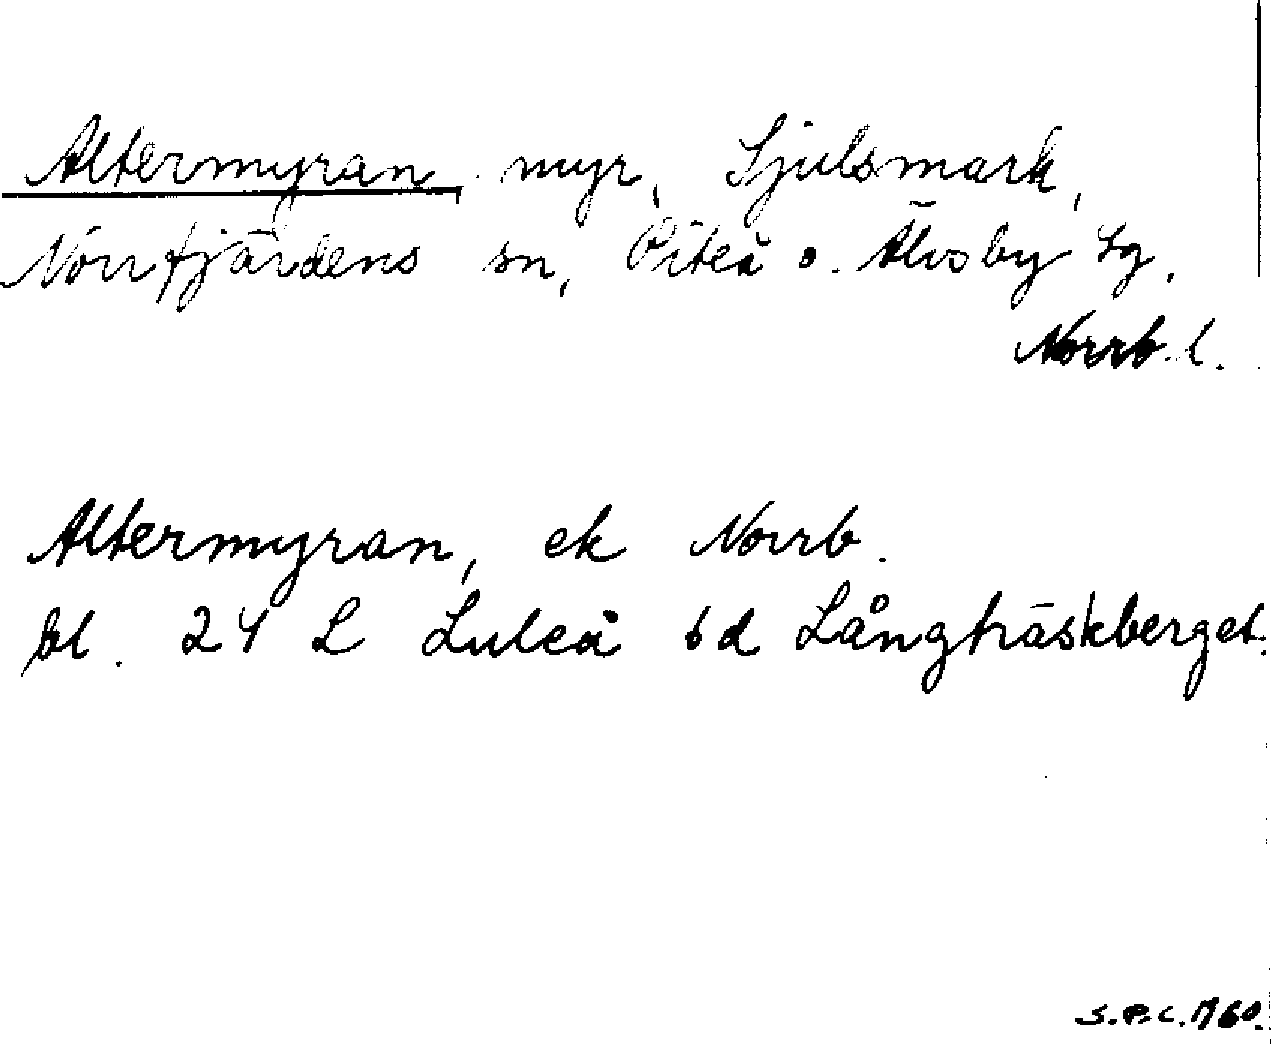 Altermyran myr, Sjulsmark,
Norrfjärdens sn, Piteå o. Älvsby tg,
Norrb. l.
Altermyran, ek Norrb.
bl. 24 L Luleå td Långträskberget.